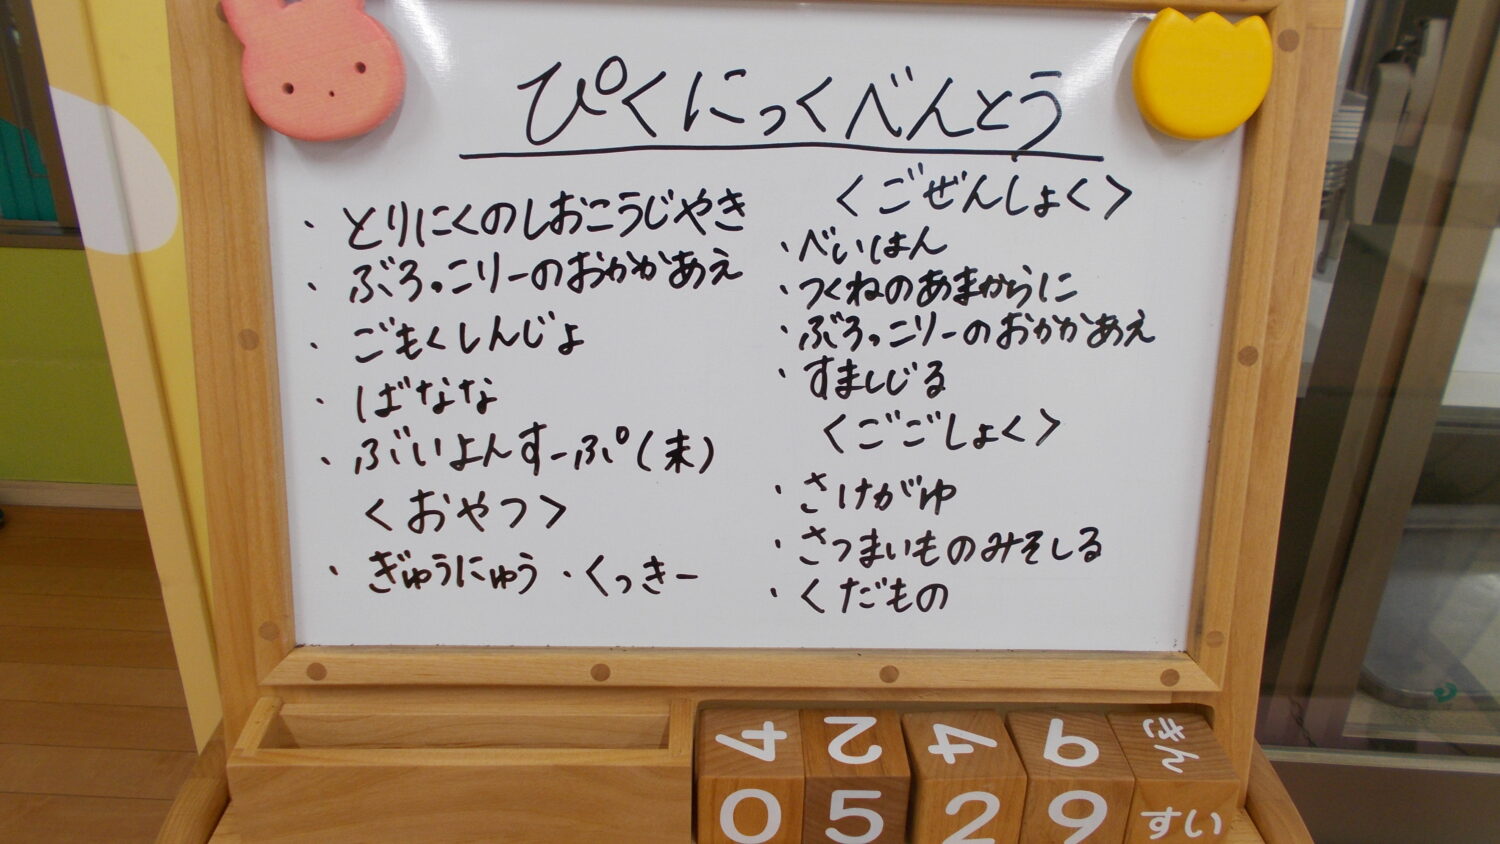 ぴくにっくべんとう
・とりにくのしおこうじやき
・ぶろっこりーのおかかあえ
・ごもくしんじょ
・ばなな
・ぶいよんすーぷ(未)
<おやつ>
・ぎゅうにゅう・くっきー
<ごぜんしょく>
・べいはん
・つくねのあまからに
・ぶろっこりーのおかかあえ
・すましじる
<ごごしょく>
・さけがゆ
・さつまいものみそしる
・くだもの
4 2 4 6 きん
0 5 2 9 すい